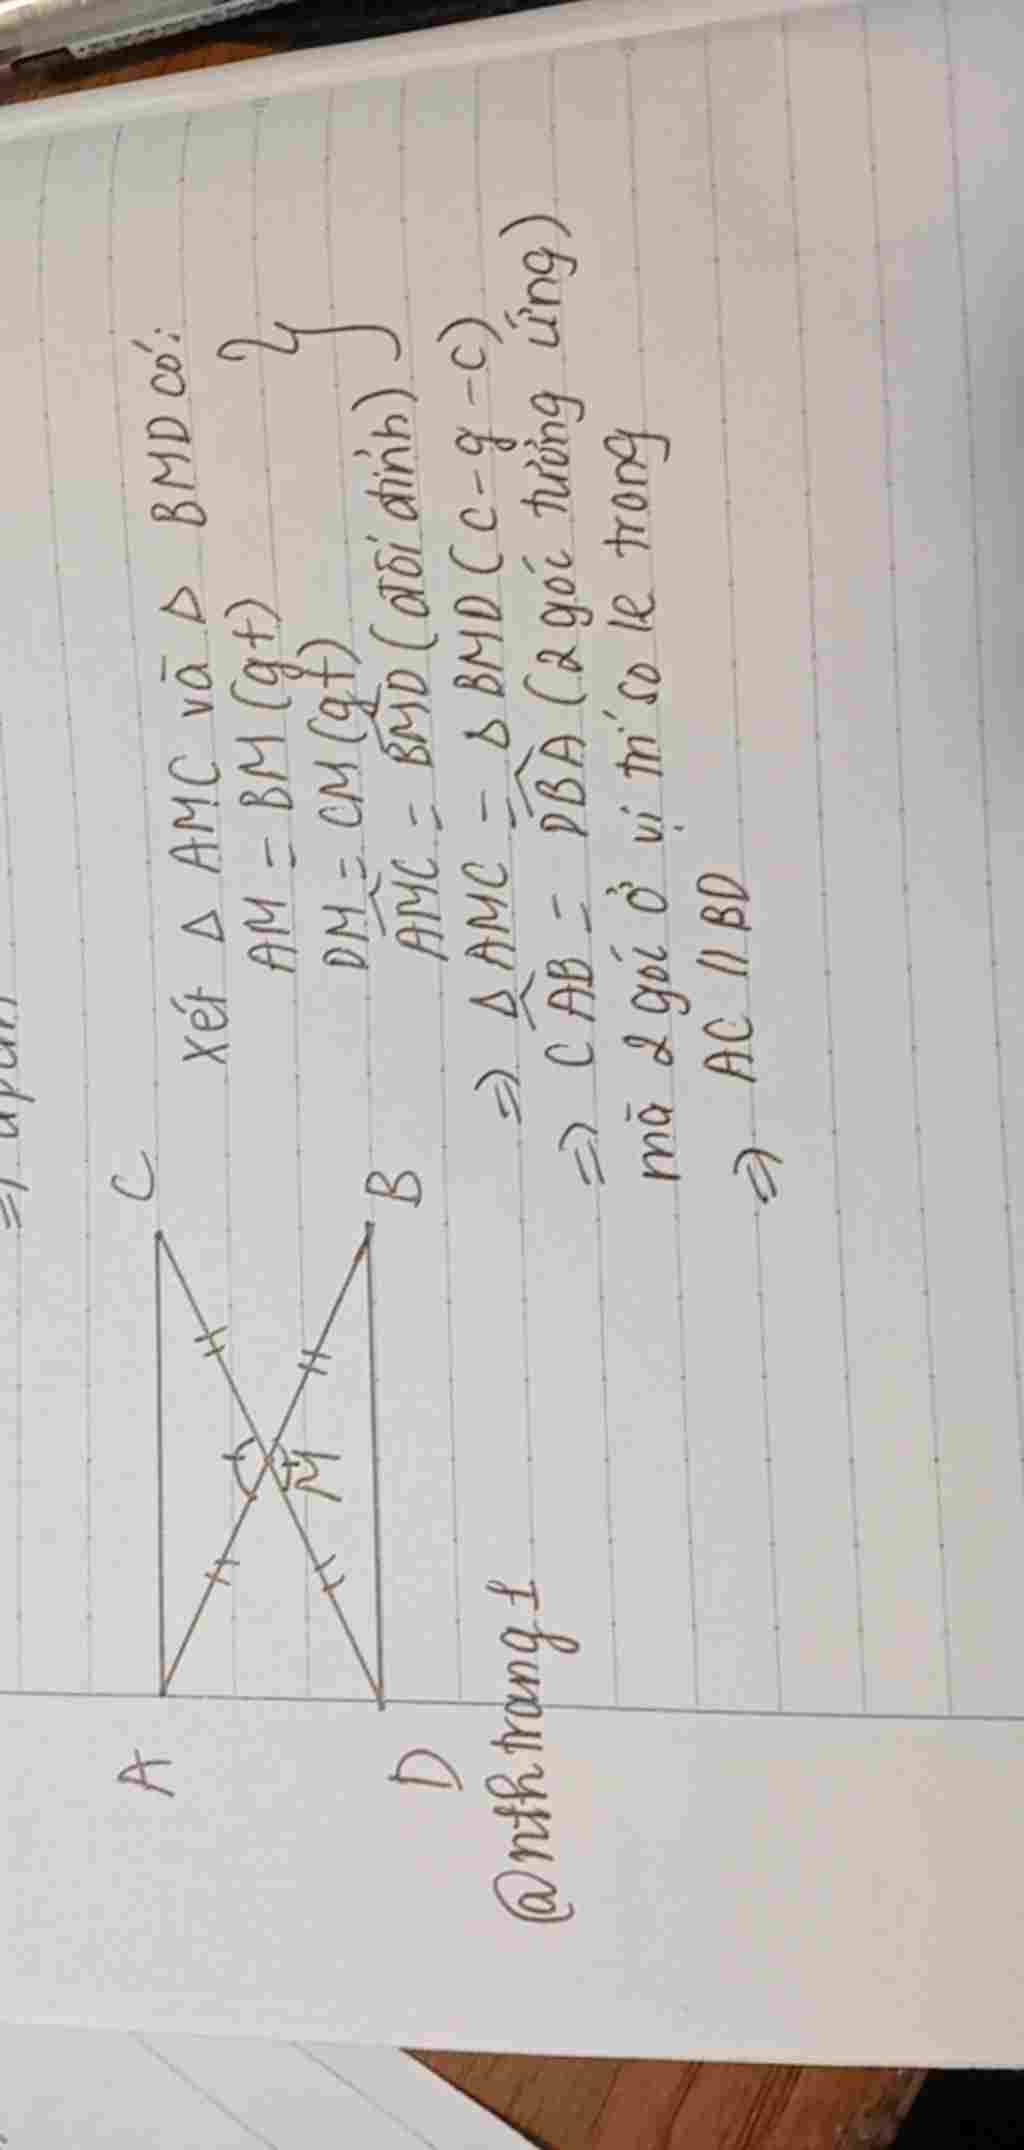 C
A
M
B
D
Xét Δ AMC và Δ BMD có:
AM = BM (gt)
DM = CM (gt)
AMC = BMD (đối đỉnh)
=> Δ AMC = Δ BMD (c-g-c)
=> CAB = DBA (2 góc tương ứng)
mà 2 góc ở vị trí so le trong
=> AC // BD
@nthtrang1